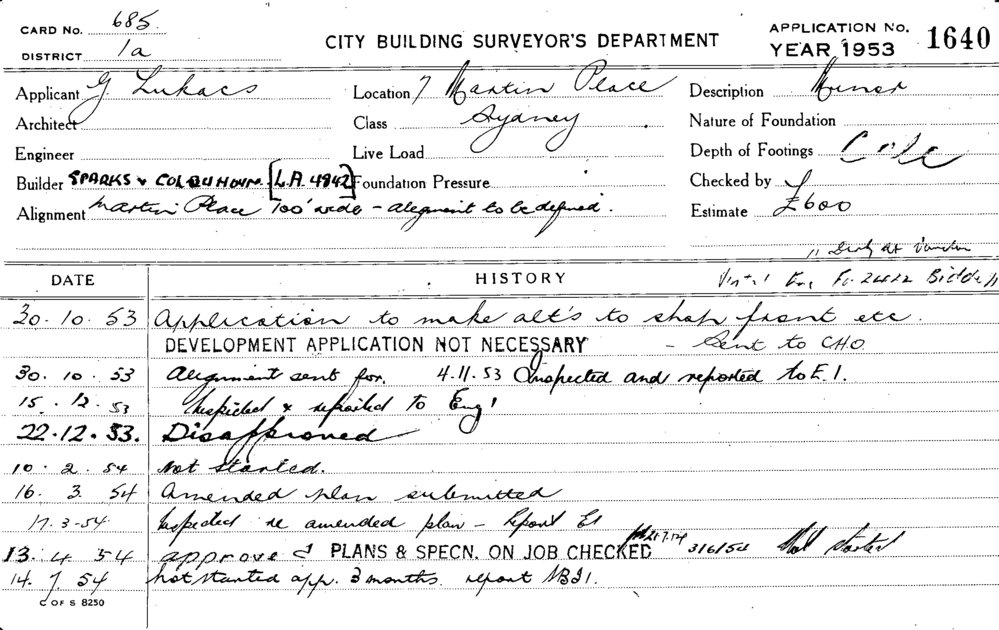 CARD No. 685.
DISTRICT 1a
CITY BUILDING SURVEYOR'S DEPARTMENT
APPLICATION No. 1640
YEAR 1953
Applicant G Lukacs
Location 7 Martin Place
Description Minor
Architect
Class Sydney
Nature of Foundation
Engineer
Live Load
Depth of Footings
Builder SPARKS & COLQUHOUN. [L.A. 4942]
Foundation Pressure
Checked by
Alignment Martin Place 100' wide - alignment to be defined.
Estimate £600
DATE
HISTORY
30.10.53 Application to make alt's to shop front etc.
DEVELOPMENT APPLICATION NOT NECESSARY - Sent to CHO
30.10.53 Alignment sent for. 4.11.53 Inspected and reported to E.I.
15.12.53 Inspected & reported to Eng'
22.12.53. Disapproved
10.2.54 Not started.
16.3.54 Amended plan submitted
17.3.54 Inspected re amended plan - Report EI
13.4.54 approved PLANS & SPECN. ON JOB CHECKED 3/6/54 Not started
14.7.54 Not started app. 3 months. report
C OF S 8250